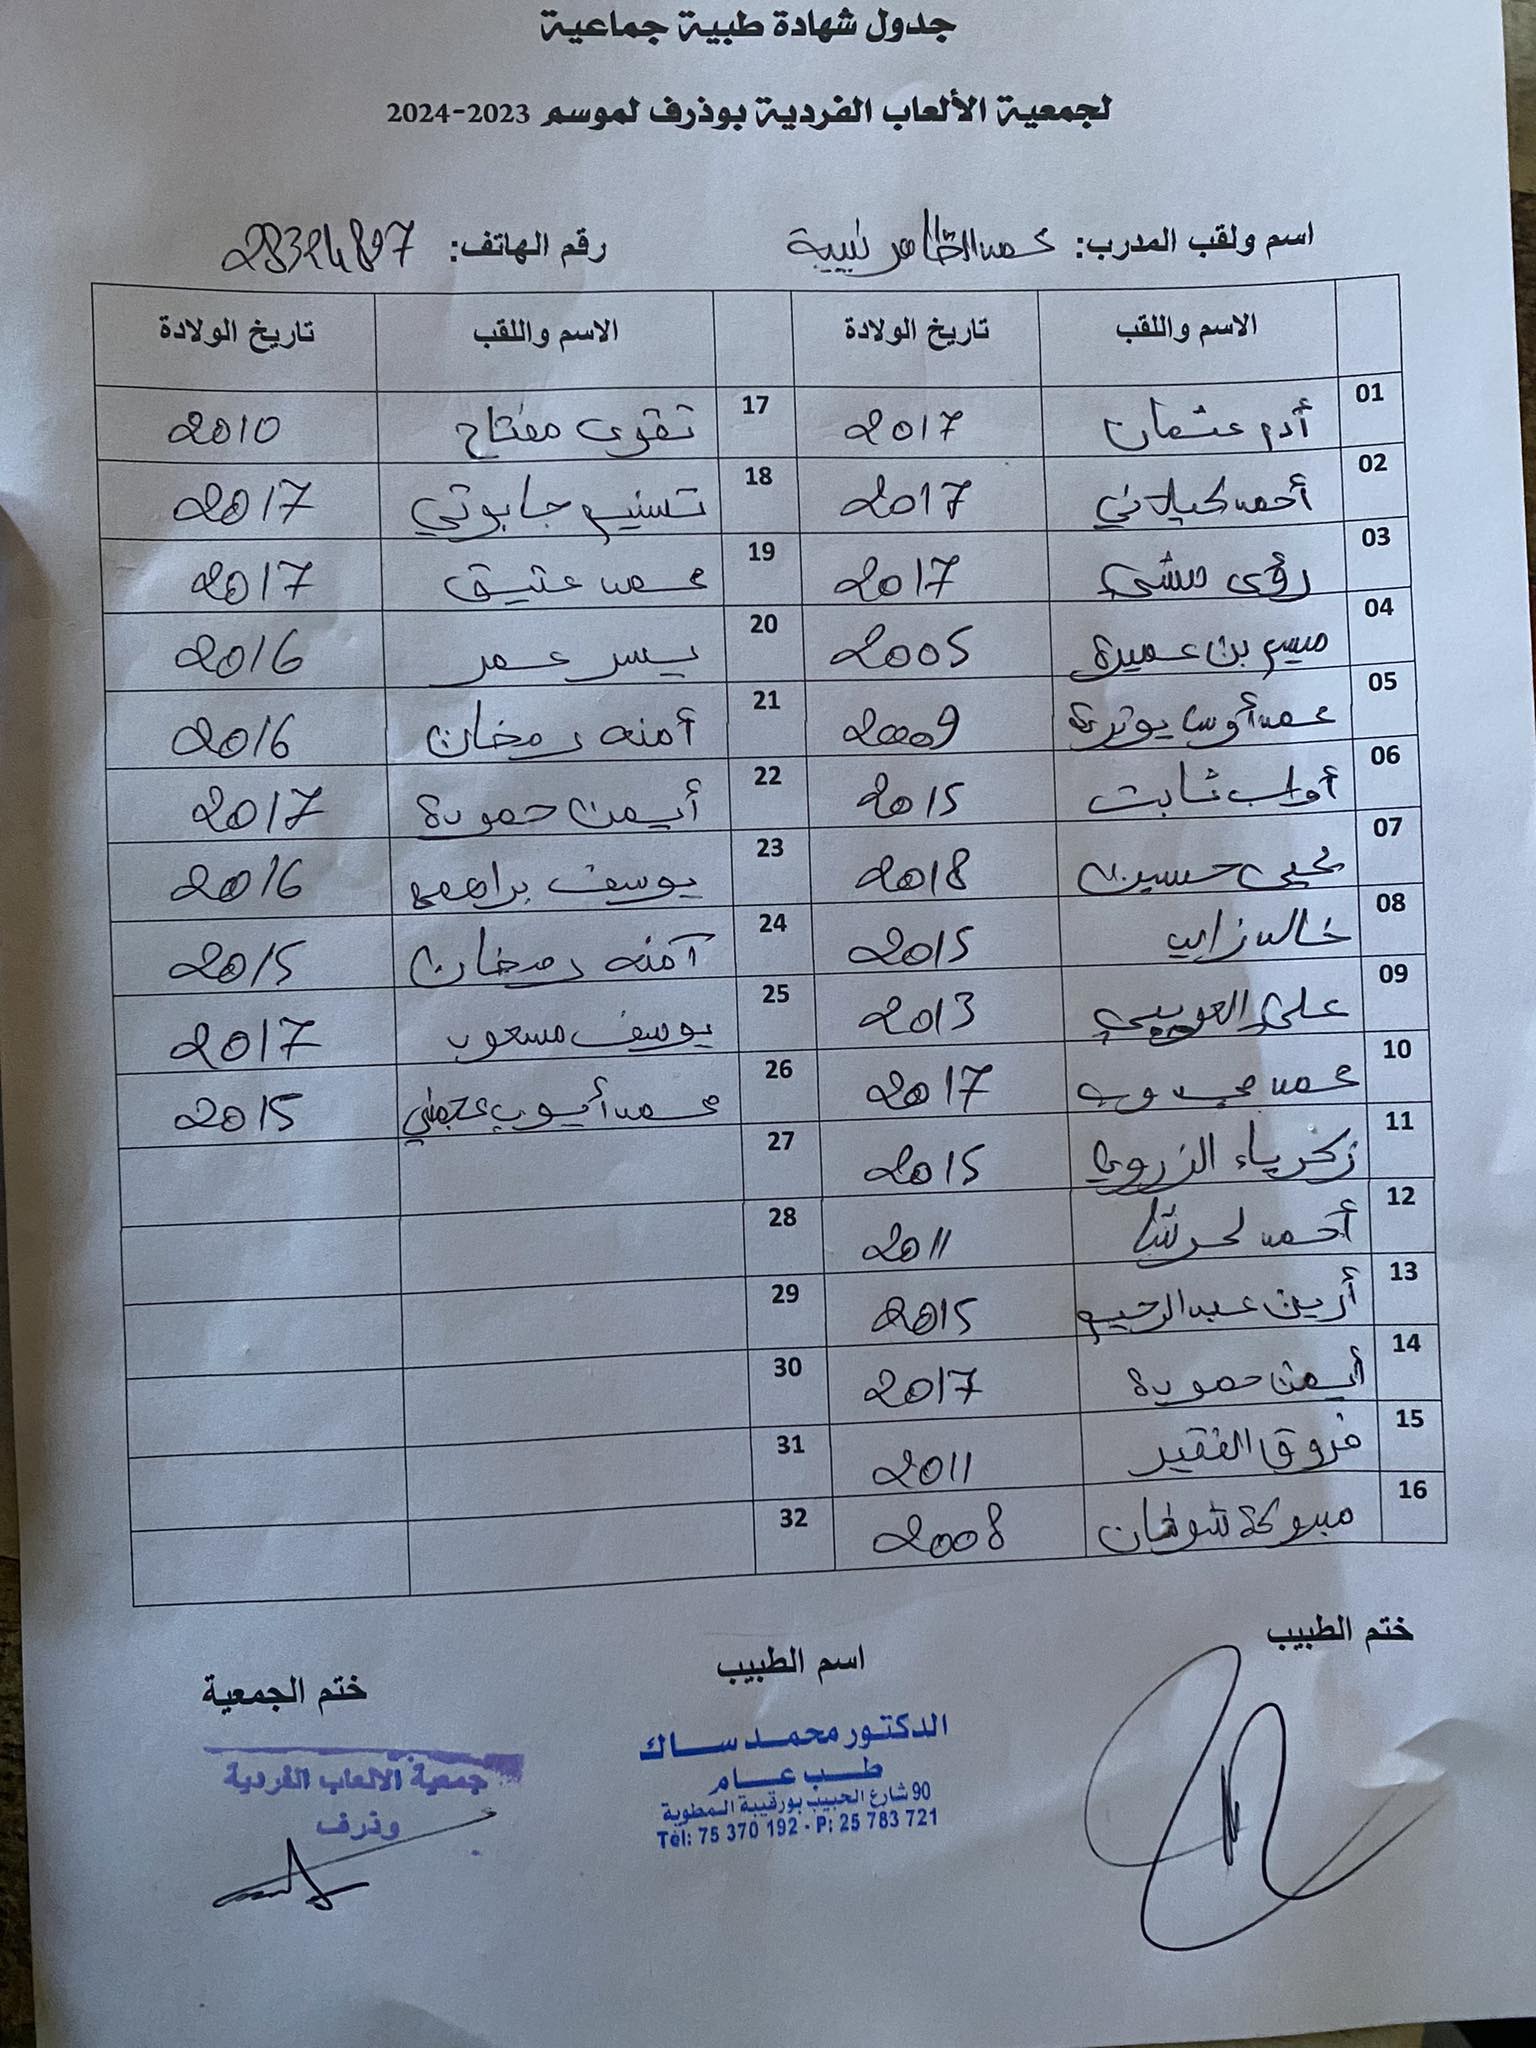 جدول شهادة طبية جماعية
لجمعية الألعاب الفردية بوذرف لموسم 2023-2024
اسم ولقب المدرب: محمد الطاهر نبيبة رقم الهاتف: 28324897
الاسم واللقب تاريخ الولادة الاسم واللقب تاريخ الولادة
01 أدم عثمان 2017 17 تقوى مفتاح 2010
02 أحمد كيلاني 2017 18 تسنيم جابوتي 2017
03 رؤى مشي 2017 19 محمد عتيق 2017
04 ميسم بن عميرة 2005 20 يسر عمر 2016
05 2009 21 أمنه رمضان 2016
06 أواب ثابت 2015 22 أيمن حمودة 2017
07 يحيى حسين 2018 23 يوسف براهمي 2016
08 خالد زايد 2015 24 آمنه رمضان 2015
09 علي العريبي 2013 25 يوسف مسعود 2017
10 محمد مجدوب 2017 26 محمد أيوب عجمني 2015
11 زكرياء الزروي 2015 27
12 أحمد لحرشا 2011 28
13 أرين عبد الرحيم 2015 29
14 أيمن حمودة 2017 30
15 فروق الفقير 2011 31
16 مبروكة شوشان 2008 32
ختم الطبيب اسم الطبيب ختم الجمعية
الدكتور محمد ساك
طب عام
90 شارع الحبيب بورقيبة المطوية
Tél: 75 370 192 - P: 25 783 721
جمعية الالعاب الفردية
وذرف